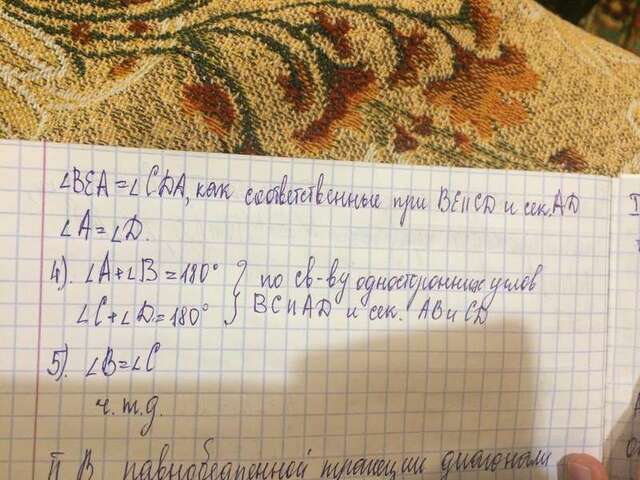 ∠BEA = ∠CDA, как соответственные при BE||CD и сек. AD
∠A = ∠D.
4). ∠A + ∠B = 180° } по св-ву односторонних углов
∠C + ∠D = 180° } BC || AD и сек. AB и CD
5). ∠B = ∠C
ч.т.д.
В равнобедренной трапеции диагонали